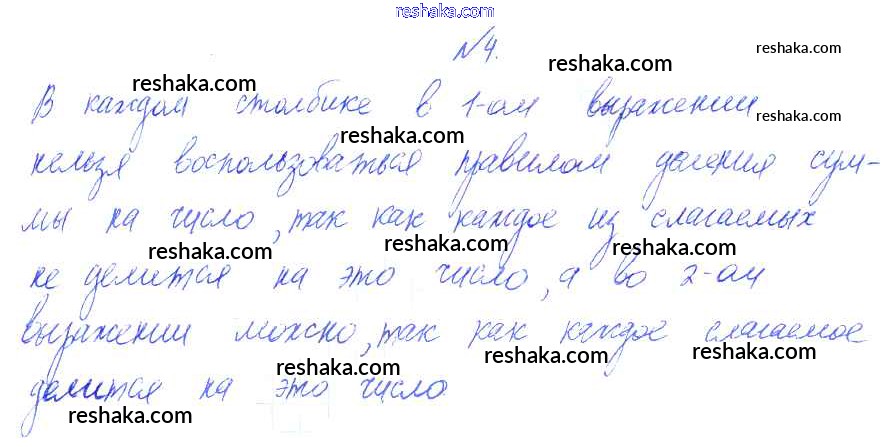 reshaka.com
№4.
reshaka.com
reshaka.com
reshaka.com
В каждом столбике в 1-ом выражении
reshaka.com
reshaka.com
нельзя воспользоваться правилом деления сум-
мы на число, так как каждое из слагаемых
reshaka.com
reshaka.com
reshaka.com
не делится на это число, а во 2-ом
выражении можно, так как каждое слагаемое
reshaka.com
reshaka.com
reshaka.com
делится на это число
reshaka.com